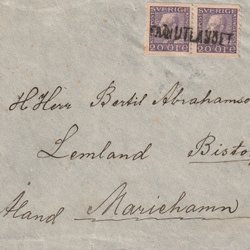 SVERIGE SVERIGE
FRÅN UTLANDET
20 ÖRE 20 ÖRE
H Herr Bertil Abrahamso
Lemland Bisto
Åland Mariehamn